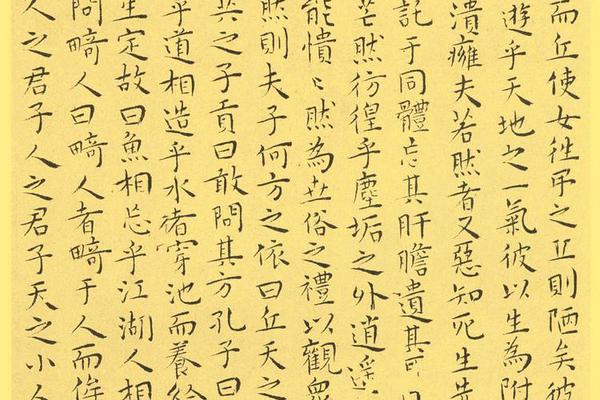 而丘使女往弔之丘則陋矣彼
遊乎天地之一氣彼以生為附
潰癰夫若然者又惡知死生先
託于同體忘其肝膽遺其耳目
芒然彷徨乎塵垢之外逍遙
能憒〻然為世俗之禮以觀眾
然則夫子何方之依曰丘天之
共之子貢曰敢問其方孔子曰
乎道相造乎水者穿池而養給
生定故曰魚相忘乎江湖人相
問畸人曰畸人者畸于人而侔
人之君子人之君子天之小人